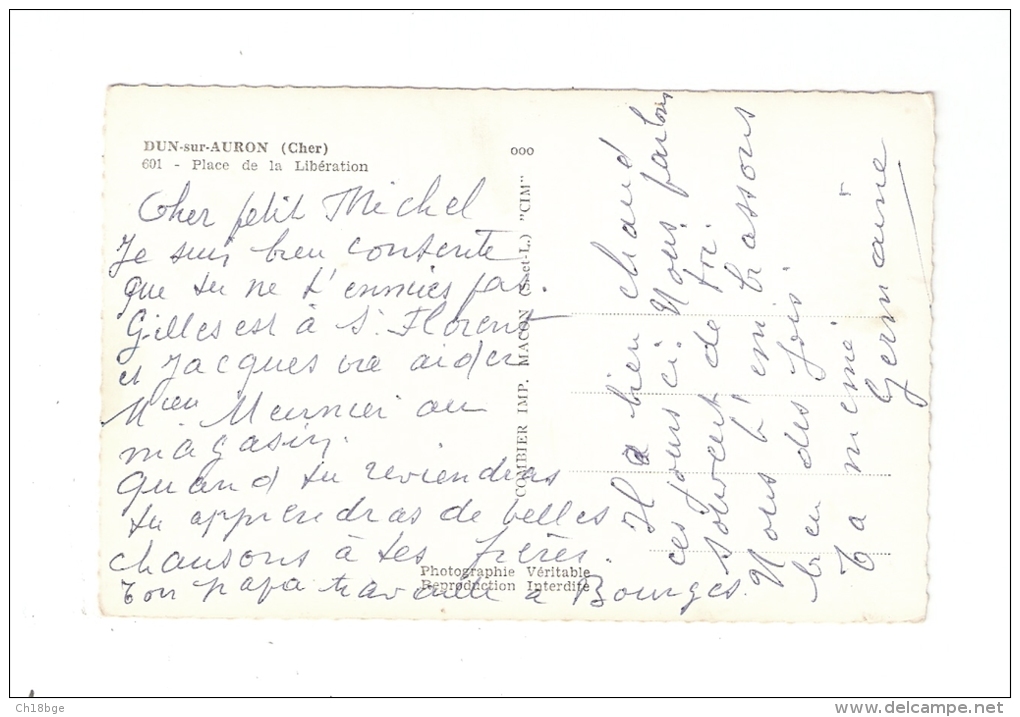 DUN-sur-AURON (Cher)
601 - Place de la Libération
ooo
Cher petit Michel
Je suis bien contente
que tu ne t'ennuies pas.
Gilles est à St Florent
et Jacques va aider
Mr Meunier au
magasin.
Quand tu reviendras
tu apprendras de belles
chansons à tes frères.
Ton papa travaille à Bourges.
COMBIER IMP. MACON (Saet-L.) "CIM"
Photographie Véritable
Reproduction Interdite
Il a bien chaud
ces jours ci. Nous parlons
souvent de toi.
Nous t'embrassons
bien des fois.
Ta mémé
Germaine
Ch18bge
www.delcampe.net